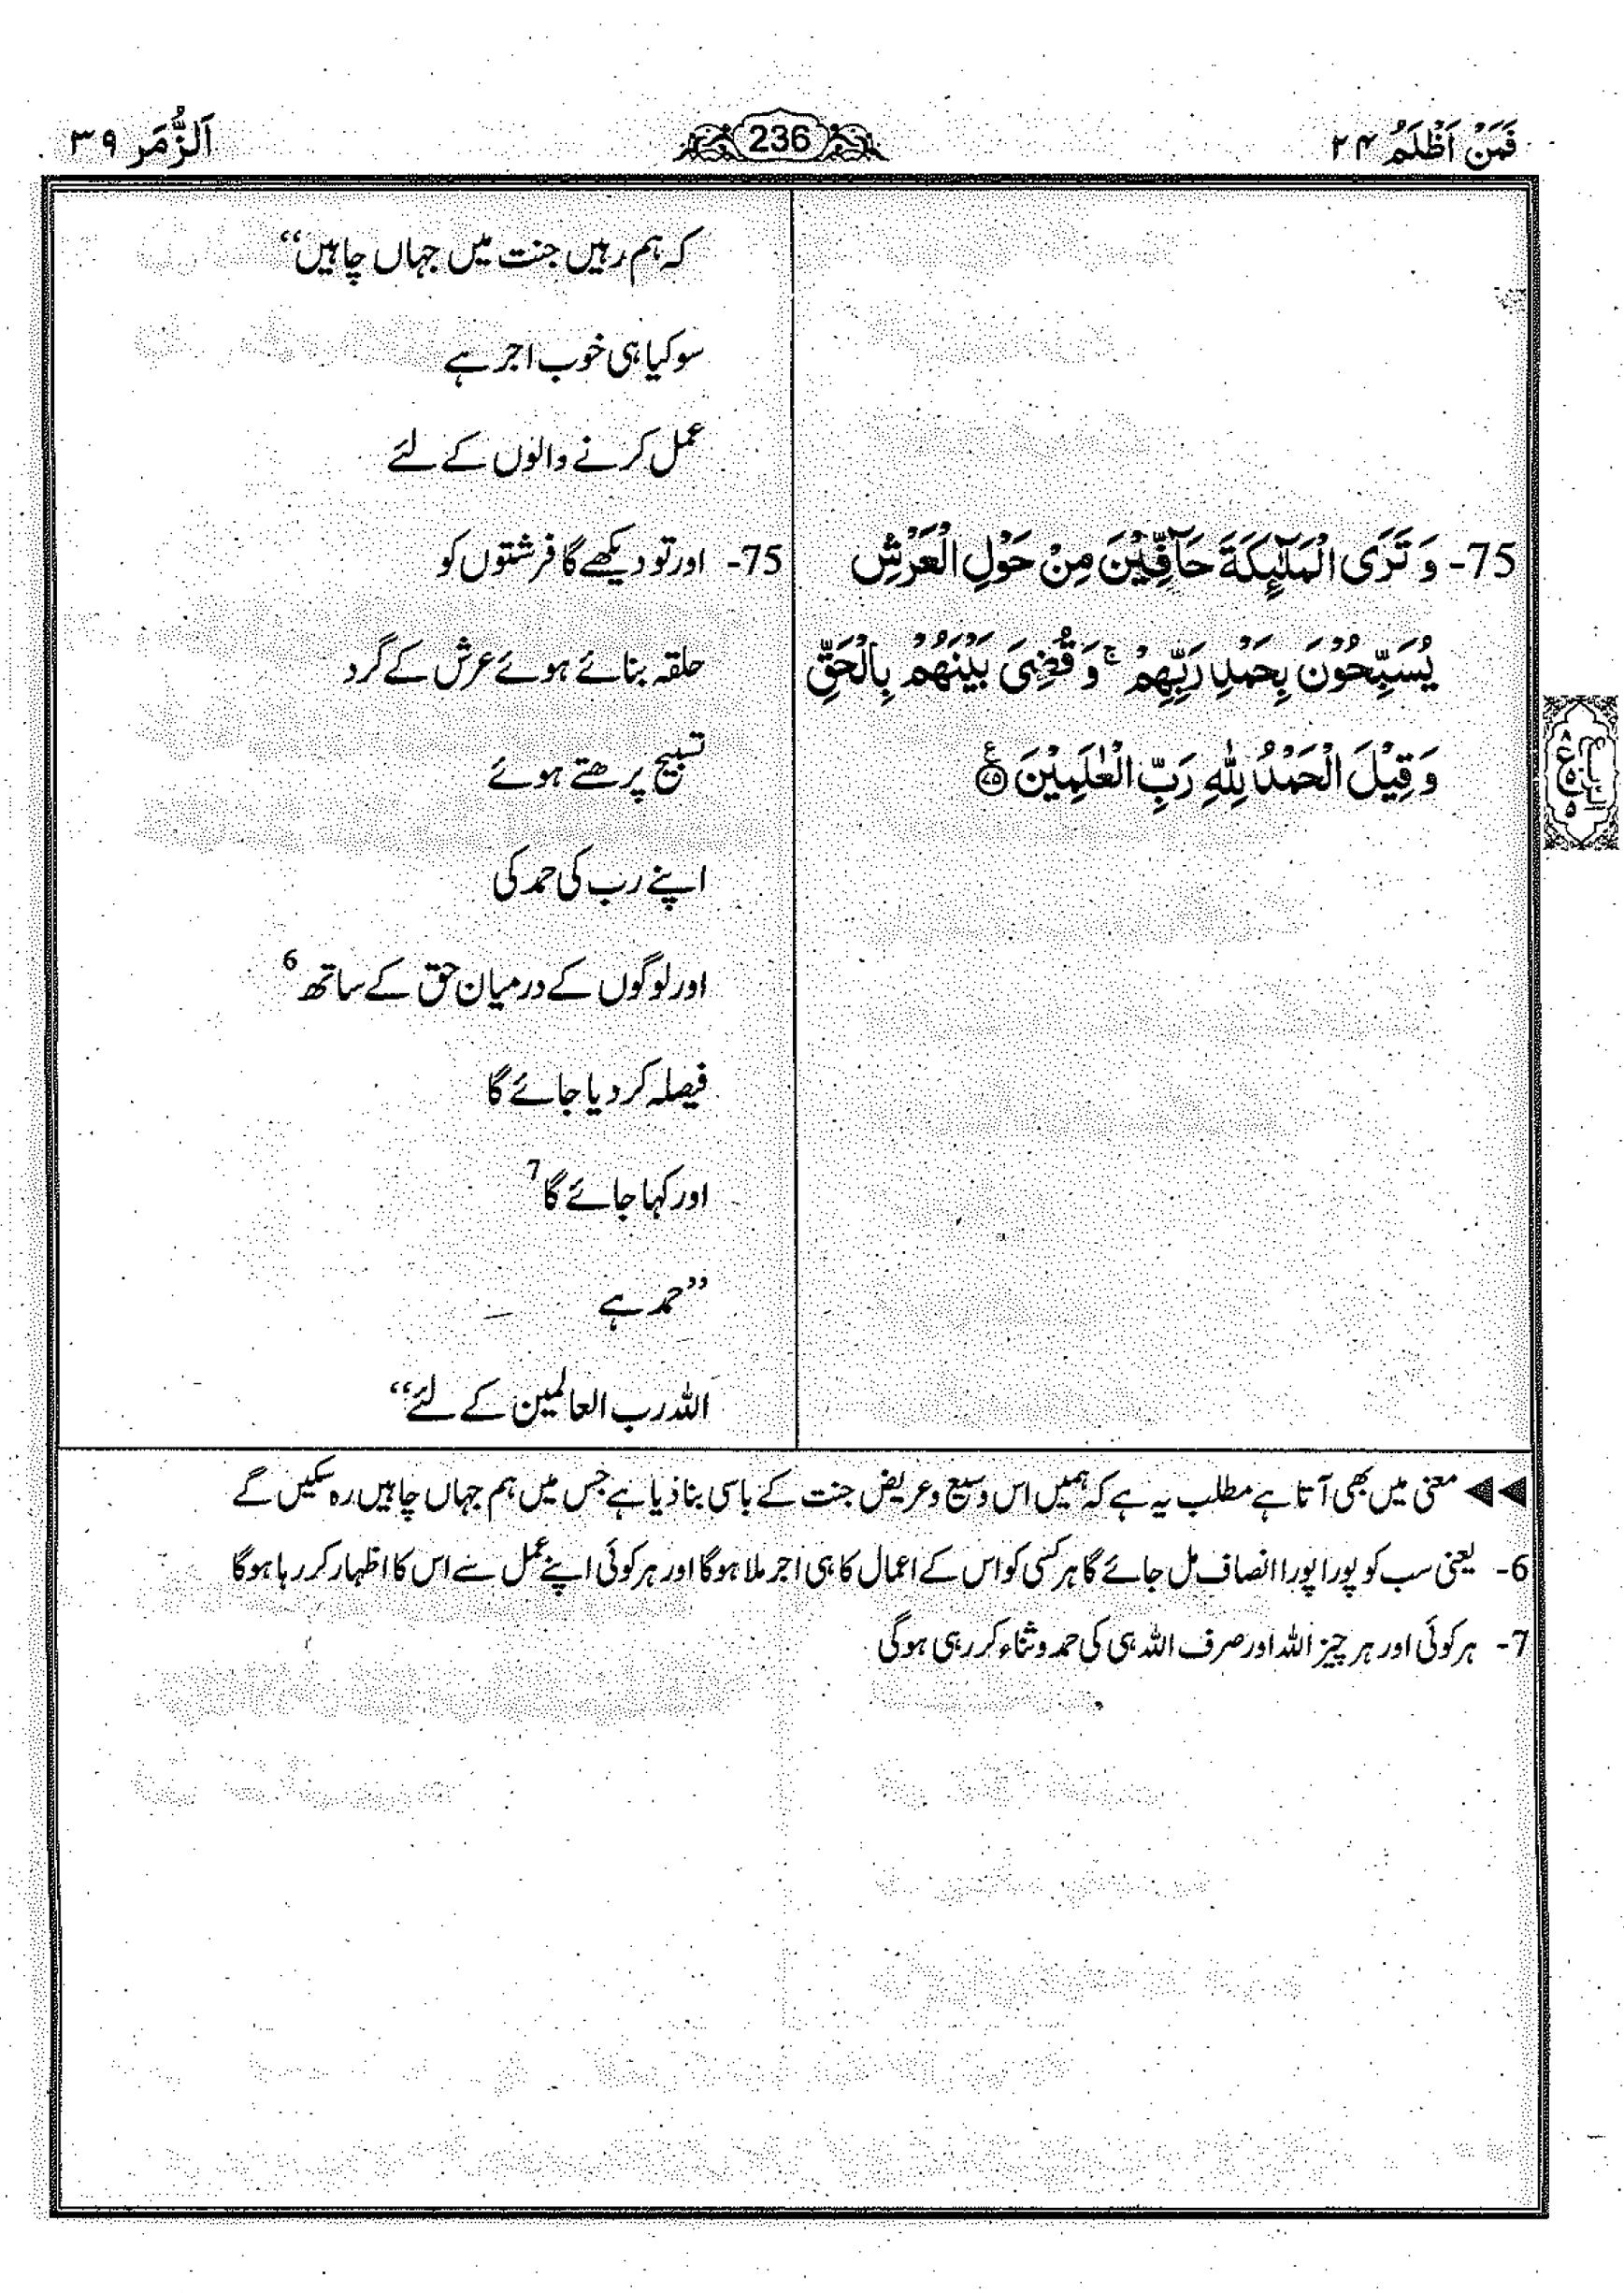 فَمَنْ اَظْلَمُ ۲۴
236
اَلزُّمَر ۳۹
کہ ہم رہیں جنت میں جہاں چاہیں“
سو کیا ہی خوب اجر ہے
عمل کرنے والوں کے لئے
75- وَ تَرَى الْمَلٰٓئِكَةَ حَآفِّیْنَ مِنْ حَوْلِ الْعَرْشِ
یُسَبِّحُوْنَ بِحَمْدِ رَبِّهِمْ ۚ وَ قُضِیَ بَیْنَهُمْ بِالْحَقِّ
وَ قِیْلَ الْحَمْدُ لِلّٰهِ رَبِّ الْعٰلَمِیْنَ ﴿۷۵﴾ ع
75- اور تو دیکھے گا فرشتوں کو
حلقہ بنائے ہوئے عرش کے گرد
تسبیح پڑھتے ہوئے
اپنے رب کی حمد کی
اور لوگوں کے درمیان حق کے ساتھ 6
فیصلہ کر دیا جائے گا
اور کہا جائے گا 7
”حمد ہے
اللہ رب العالمین کے لئے“
معنی میں بھی آتا ہے مطلب یہ ہے کہ ہمیں اس وسیع و عریض جنت کے باسی بنا دیا ہے جس میں ہم جہاں چاہیں رہ سکیں گے
6- یعنی سب کو پورا پورا انصاف مل جائے گا ہر کسی کو اس کے اعمال کا ہی اجر ملا ہوگا اور ہر کوئی اپنے عمل سے اس کا اظہار کر رہا ہوگا
7- ہر کوئی اور ہر چیز اللہ اور صرف اللہ ہی کی حمد و ثناء کر رہی ہوگی